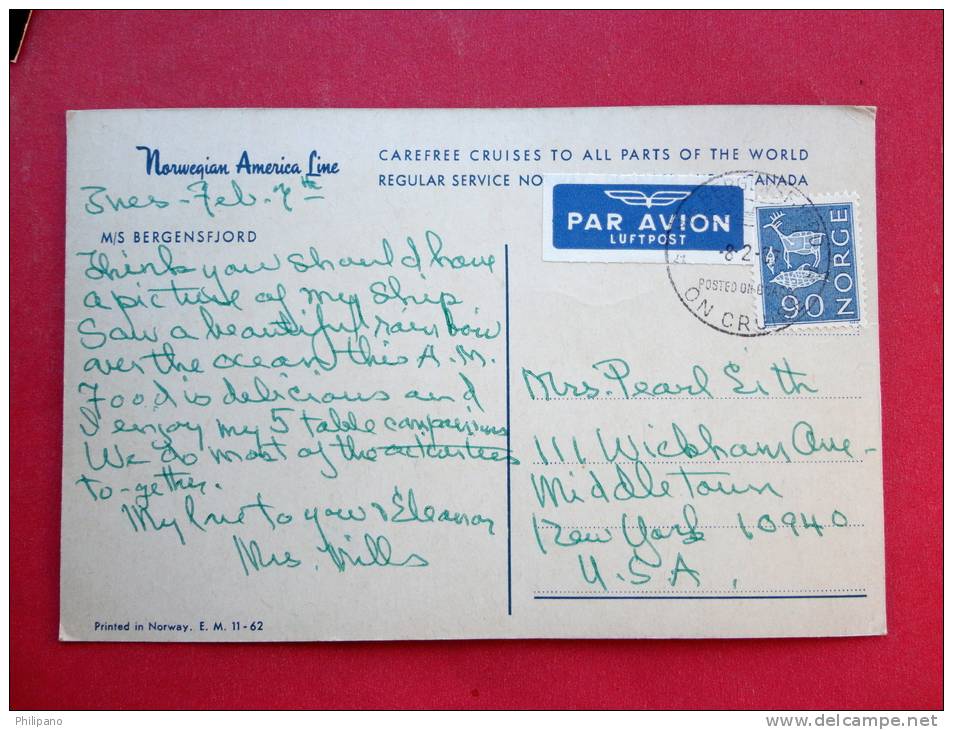 Norwegian America Line
CAREFREE CRUISES TO ALL PARTS OF THE WORLD
REGULAR SERVICE NO CANADA
Tues - Feb. 7th
M/S BERGENSFJORD
Think you should have
a picture of my ship
Saw a beautiful rainbow
over the ocean this A.M.
Food is delicious and
I enjoy my 5 table companions
We do most of the
to-gether.
My love to you & Eleanor
Mrs. Mills
Printed in Norway. E. M. 11-62
PAR AVION
LUFTPOST
8-2-
POSTED ON BOARD
ON CRU
NORGE
90
Mrs. Pearl Eith
111 Wickham Ave-
Middletown
New York 10940
U.S.A.
Philipano
www.delcampe.net